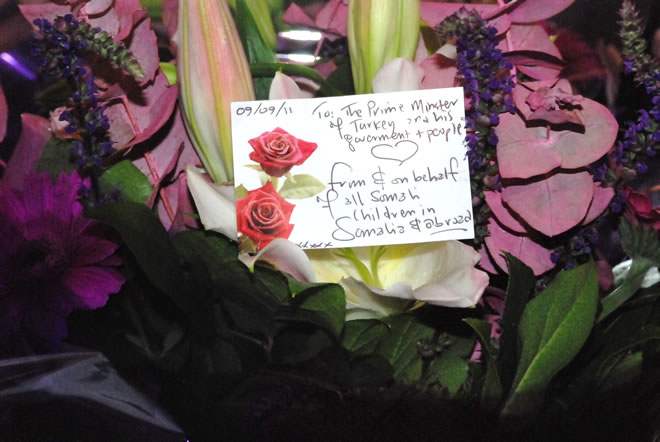 09/09/11
To: The Prime Minster
of Turkey and his
government + people
from & on behalf
of all Somali
Children in
Somalia & abroad
xxxx